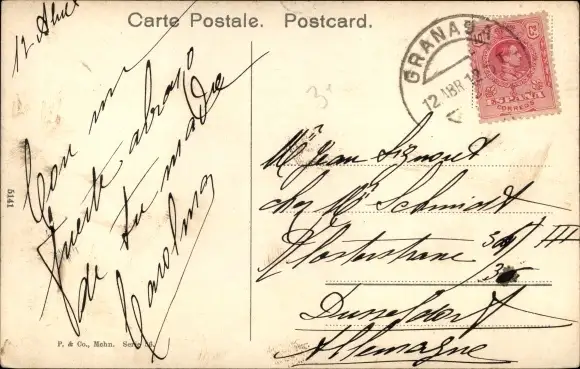 Carte Postale. Postcard.
12 Abril
Con un
fuerte abrazo
de tu madre
Carolina
5141
P. & Co., Mchn. Serie 36.
GRANADA
12 ABR 12
ESPAÑA
CORREOS
Mr Jean Signoret
chez Mr Schmidt
Klosterstrasse 36 III
Dusseldorf
Allemagne